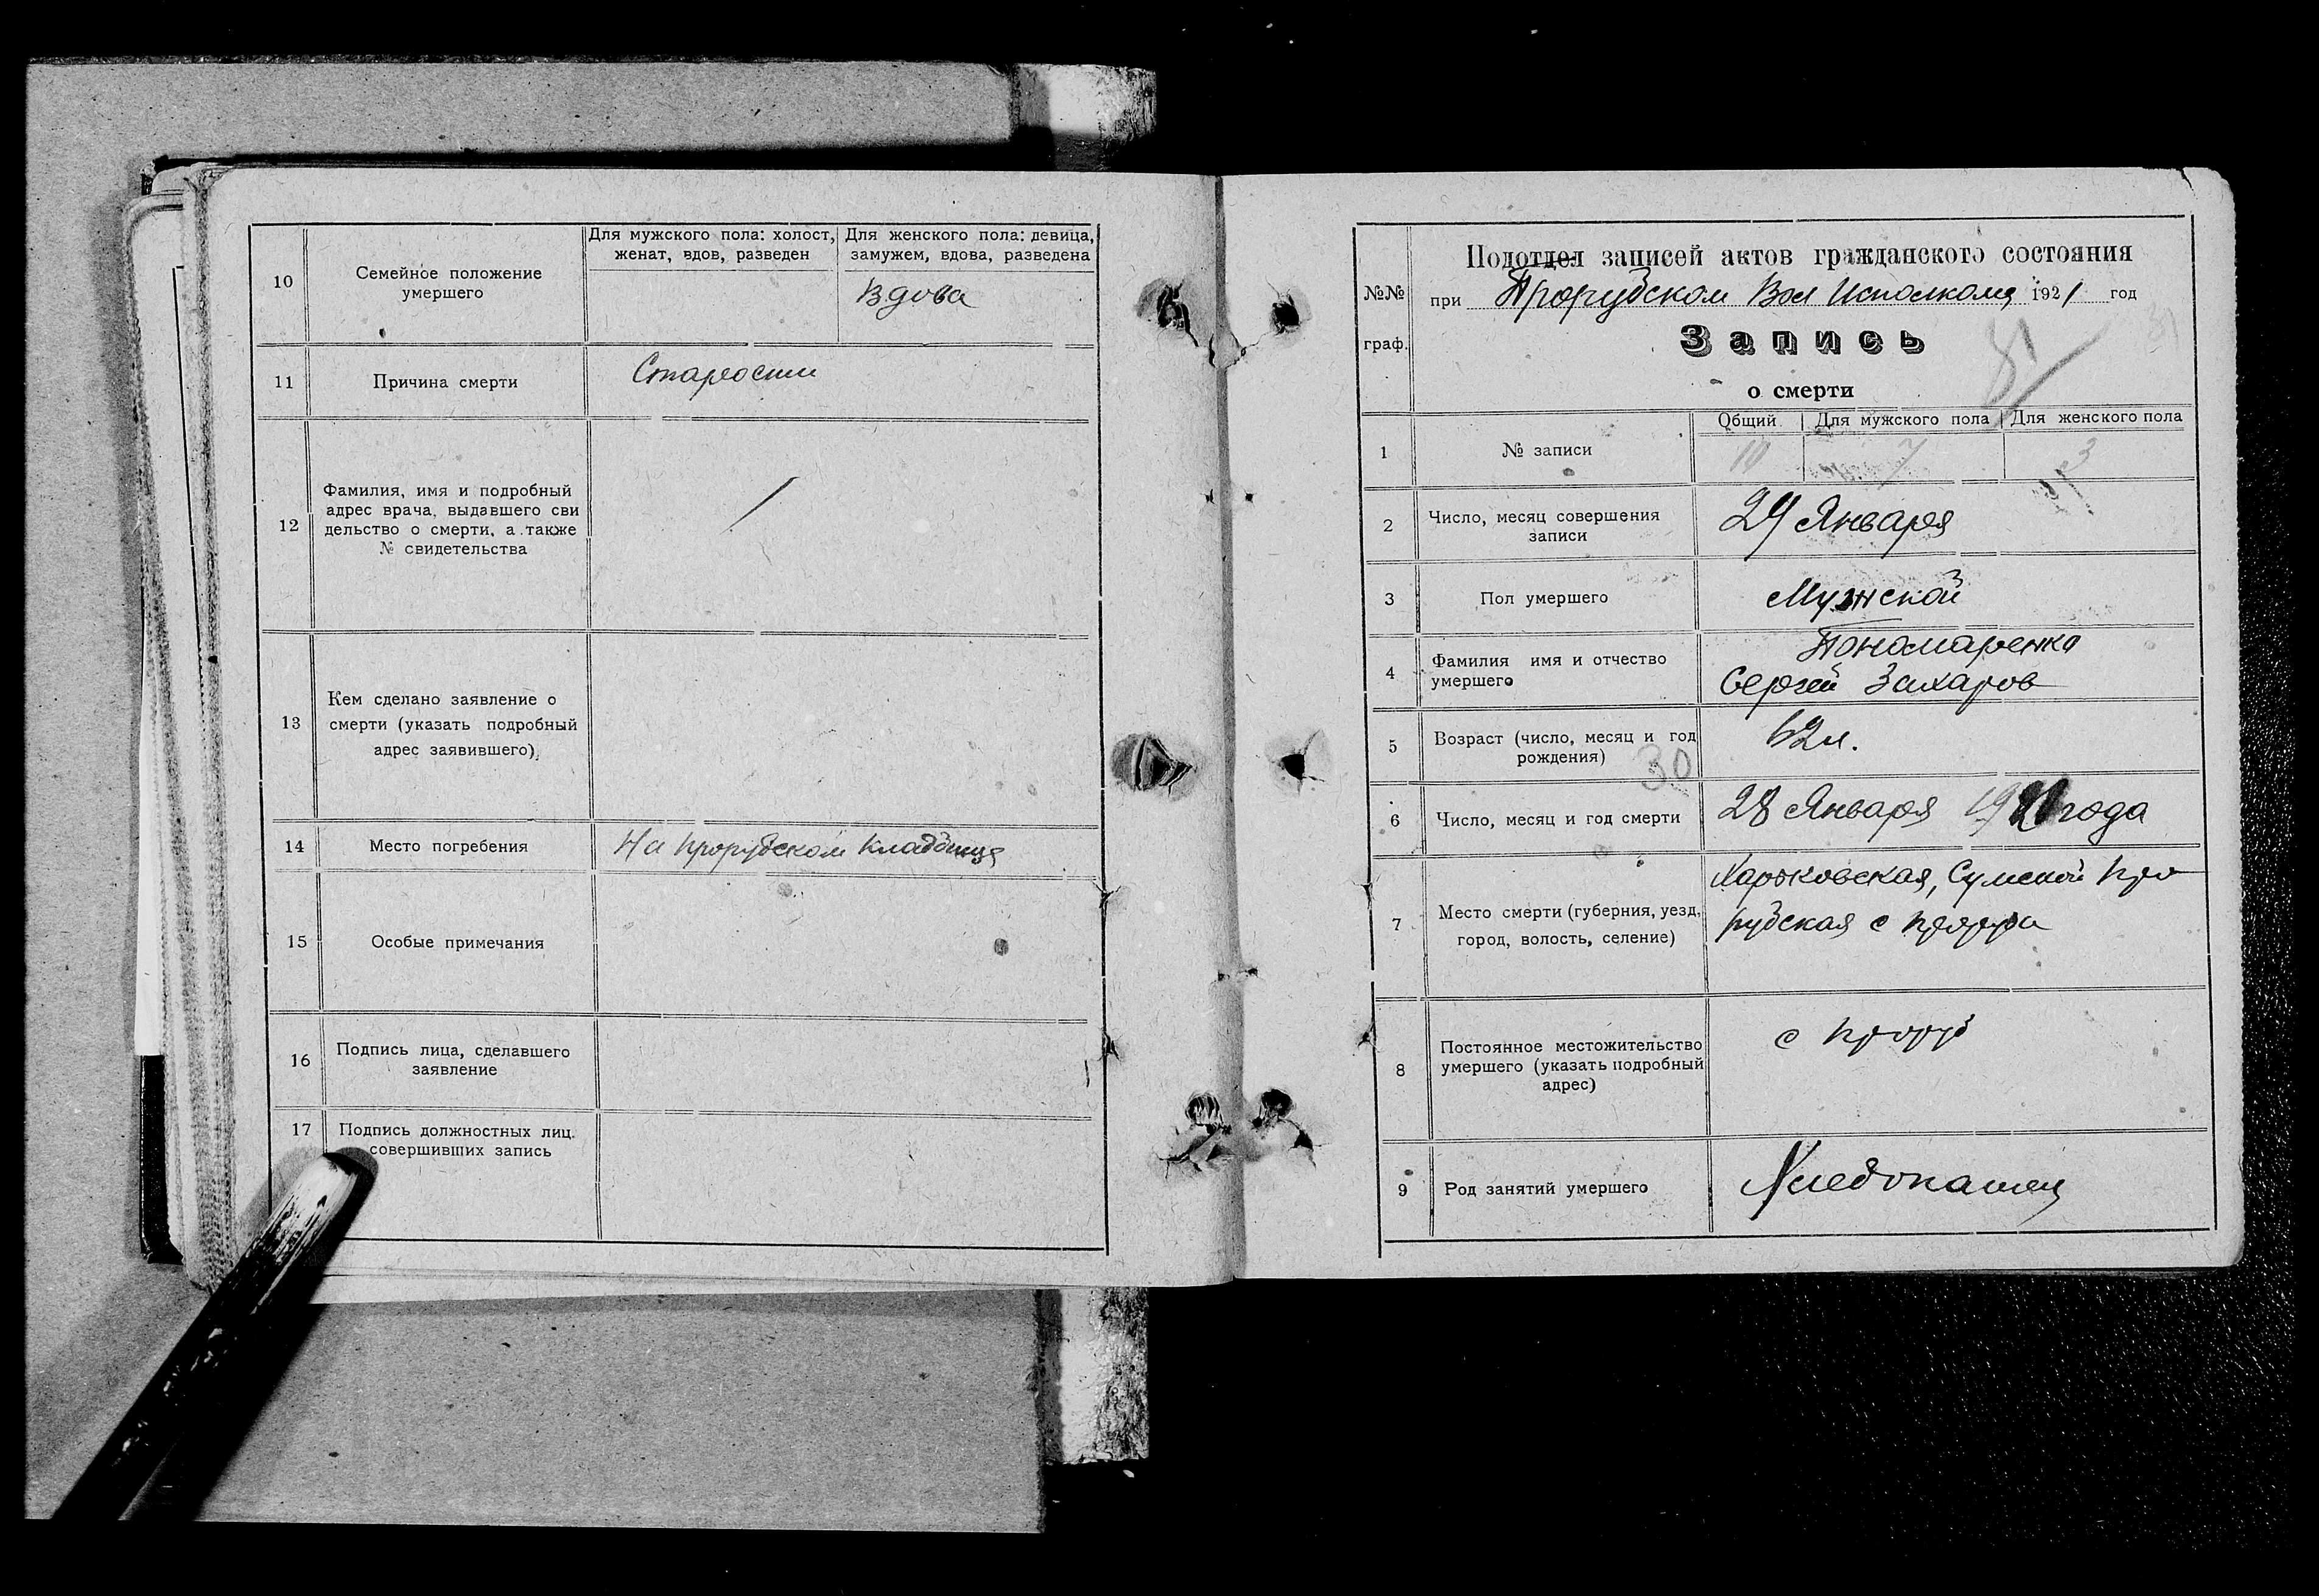 10
Семейное положение
умершего
Для мужского пола: холост,
женат, вдов, разведен
Для женского пола: девица,
замужем, вдова, разведена
Вдова
11
Причина смерти
Старости
12
Фамилия, имя и подробный
адрес врача, выдавшего сви
дельство о смерти, а также
№ свидетельства
13
Кем сделано заявление о
смерти (указать подробный
адрес заявившего)
14
Место погребения
На Прорубском кладбище
15
Особые примечания
16
Подпись лица, сделавшего
заявление
17
Подпись должностных лиц.
совершивших запись
№№
граф.
Подотдел записей актов гражданского состояния
при Прорубском Вол Исполкоме 1921 год
Запись
31
о смерти
1
№ записи
Общий
Для мужского пола
Для женского пола
10
7
3
2
Число, месяц совершения
записи
29 Января
3
Пол умершего
Мужской
4
Фамилия имя и отчество
умершего
Пономаренко
Сергей Захаров
5
Возраст (число, месяц и год
рождения)
30
62 л.
6
Число, месяц и год смерти
28 Января 1921 года
7
Место смерти (губерния, уезд,
город, волость, селение)
Харьковская, Сумской Про
рубская с
8
Постоянное местожительство
умершего (указать подробный
адрес)
с
9
Род занятий умершего
Хлебопашец